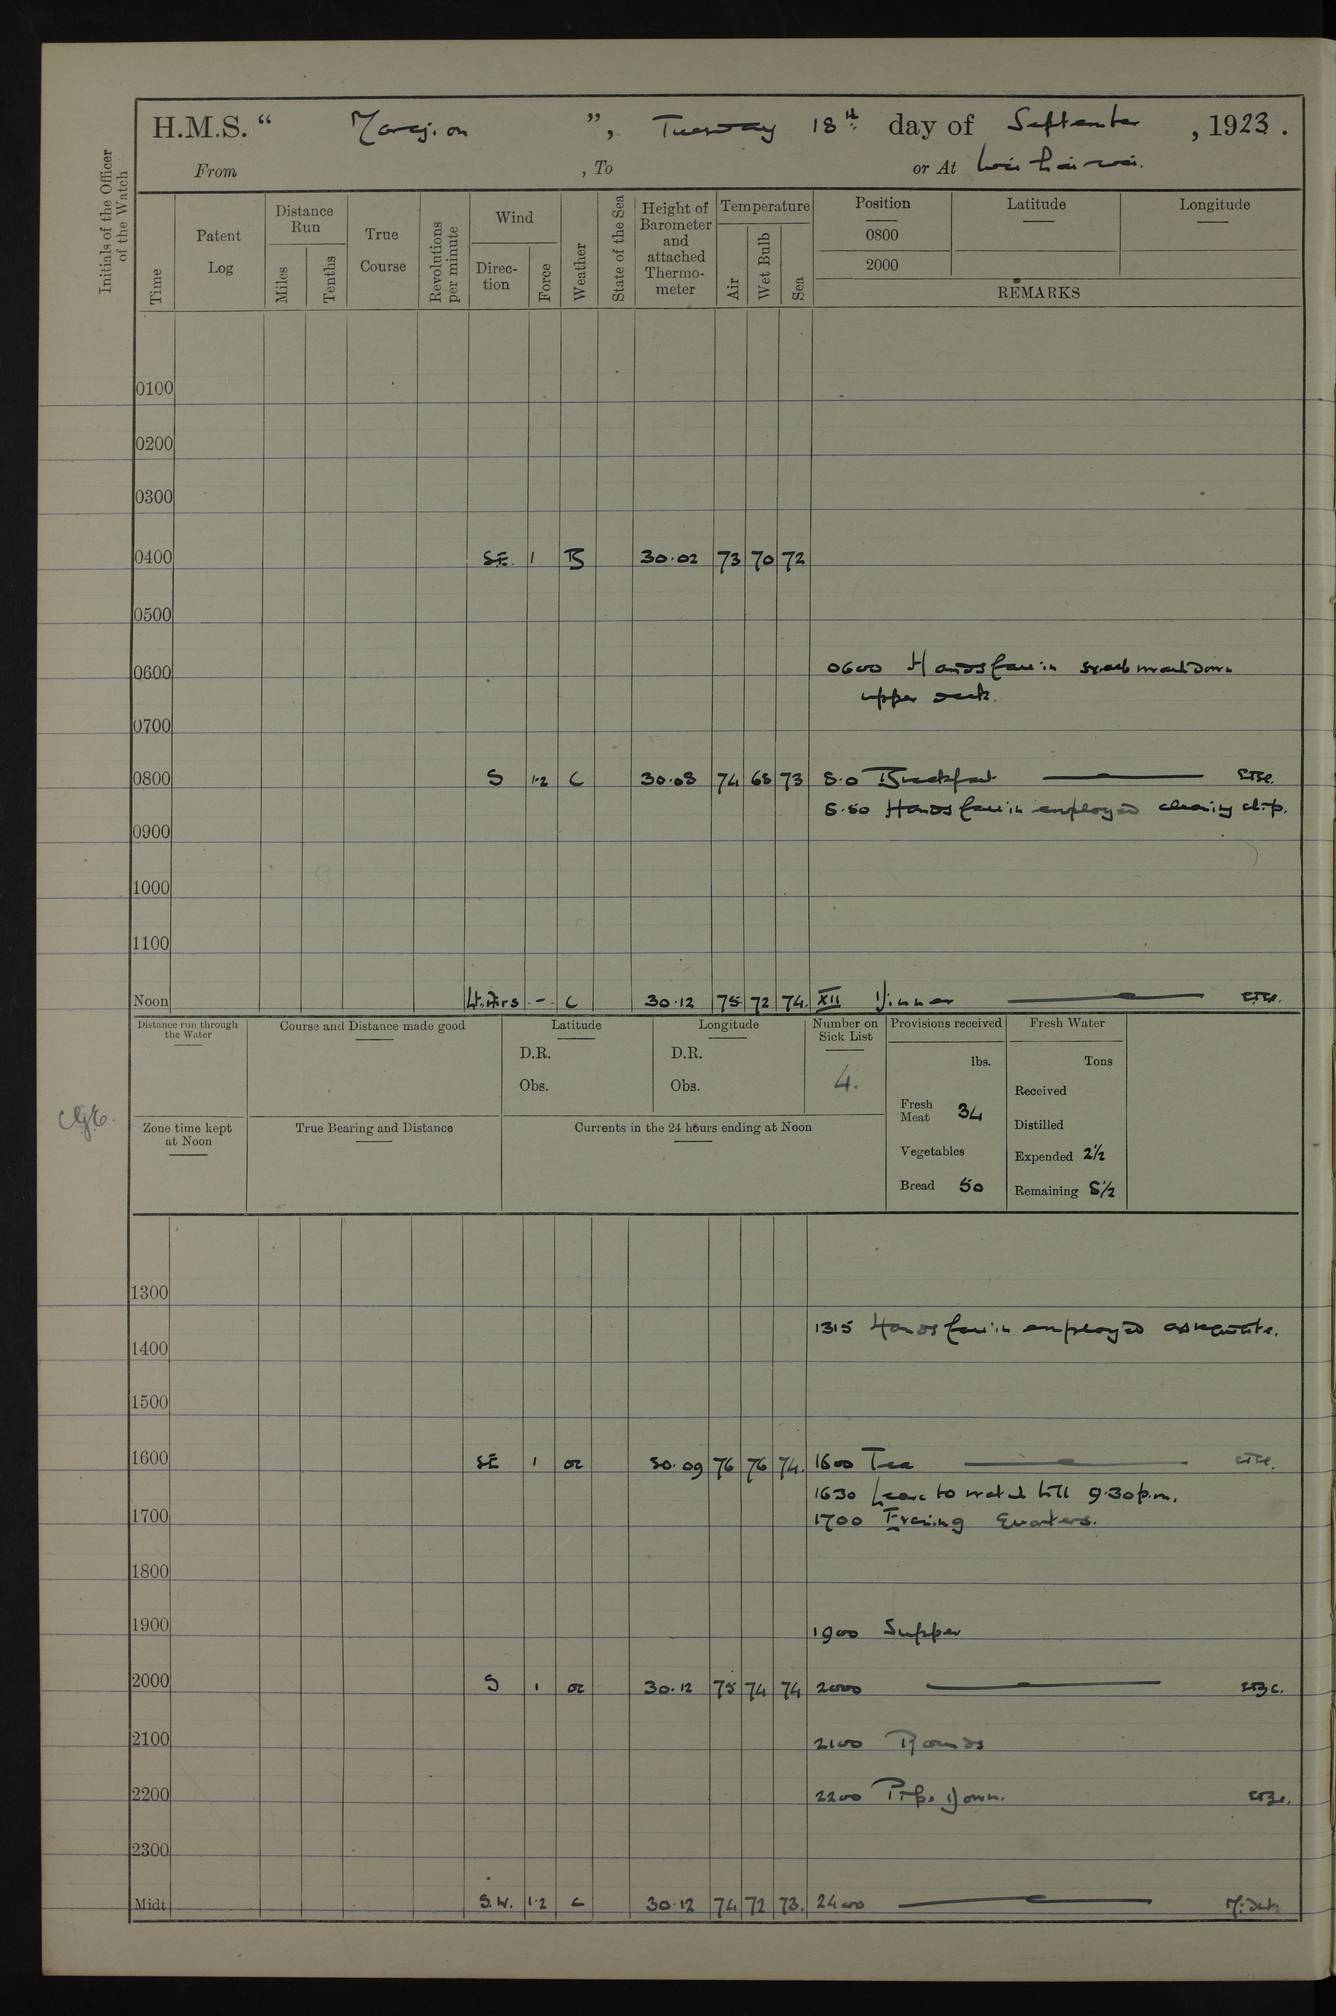 H.M.S. “ Marazion ”, Tuesday 18th day of September , 1923 .
From , To or At Wei hai wei.
Initials of the Officer of the Watch
Time Patent Log Distance Run Miles Tenths True Course Revolutions per minute Wind Direc-tion Force Weather State of the Sea Height of Barometer and attached Thermo-meter Temperature Air Wet Bulb Sea Position 0800 2000 Latitude Longitude
REMARKS
0100
0200
0300
0400 SE. 1 B 30.02 73 70 72
0500
0600 0600 Hands fall in scrub and wash down
upper deck.
0700
0800 S 1-2 C 30.08 74 68 73 8.0 Breakfast
8.50 Hands fall in employed cleaning ship.
0900
1000
1100
Noon Lt. Airs - C 30.12 75 72 74. XII Dinner
Distance run through the Water Course and Distance made good Latitude Longitude Number on Sick List Provisions received Fresh Water
D.R. D.R. lbs. Tons
Obs. Obs. 4. Received
Fresh Meat 34
Zone time kept at Noon True Bearing and Distance Currents in the 24 hours ending at Noon Distilled
Vegetables Expended 2½
Bread 50 Remaining 8½
1300
1315 Hands fall in employed as requisite.
1400
1500
1600 SE 1 oc 30.09 76 76 74. 1600 Tea
1630 Leave to watch till 9.30 p.m.
1700 1700 Evening Quarters.
1800
1900 1900 Supper
2000 S 1 oc 30.12 75 74 74 2000
2100 2100 Rounds
2200 2200 Pipe Down.
2300
Midt S.W. 1-2 C 30.12 74 72 73. 2400